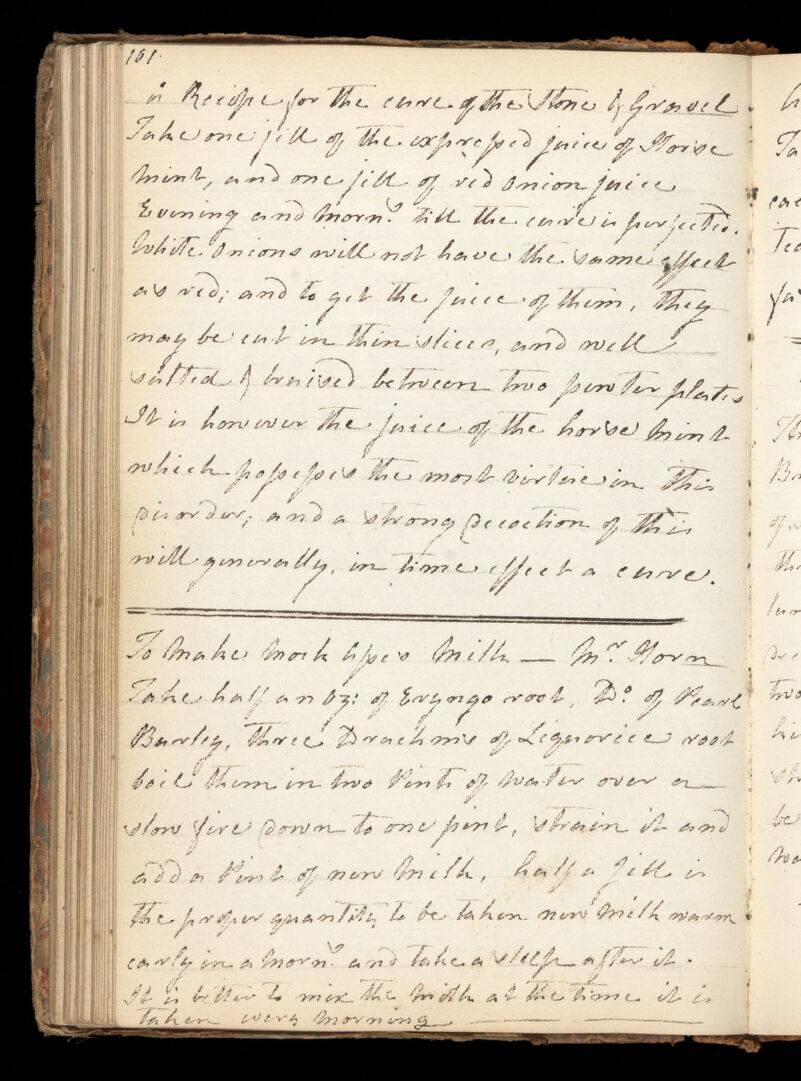 101.
a Recipe for the cure of the Stone & Gravel
Take one jill of the expressed juice of Horse
Mint, and one jill of red Onion juice
Evening and Morng. till the cure is perfected.
White Onions will not have the same effect
as red; and to get the juice of them, they
may be cut in thin slices, and well
salted & bruised between two pewter plates
It is however the juice of the horse Mint
which possesses the most virtue in this
Disorder; and a strong Decoction of this
will generally, in time effect a cure.
To Make Mock Asses Milk — Mr. Horn
Take half an oz: of Eryngo root, Do. of Pearl
Barley, three Drachms of Liquorice root
boil them in two Pints of water over a
slow fire down to one pint, strain it and
add a Pint of new Milk, half a Jill is
the proper quantity to be taken new Milk warm
early in a Morng. and take a sleep after it.
It is better to mix the Milk at the time it is
taken every Morning